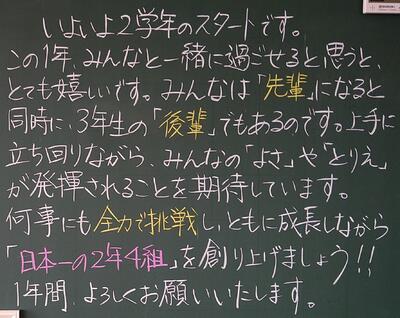 いよいよ2学年のスタートです。
この1年、みんなと一緒に過ごせると思うと、
とても嬉しいです。みんなは「先輩」になると
同時に、3年生の「後輩」でもあるのです。上手に
立ち回りながら、みんなの「よさ」や「とりえ」
が発揮されることを期待しています。
何事にも全力で挑戦し、ともに成長しながら
「日本一の2年4組」を創り上げましょう!!
1年間、よろしくお願いいたします。